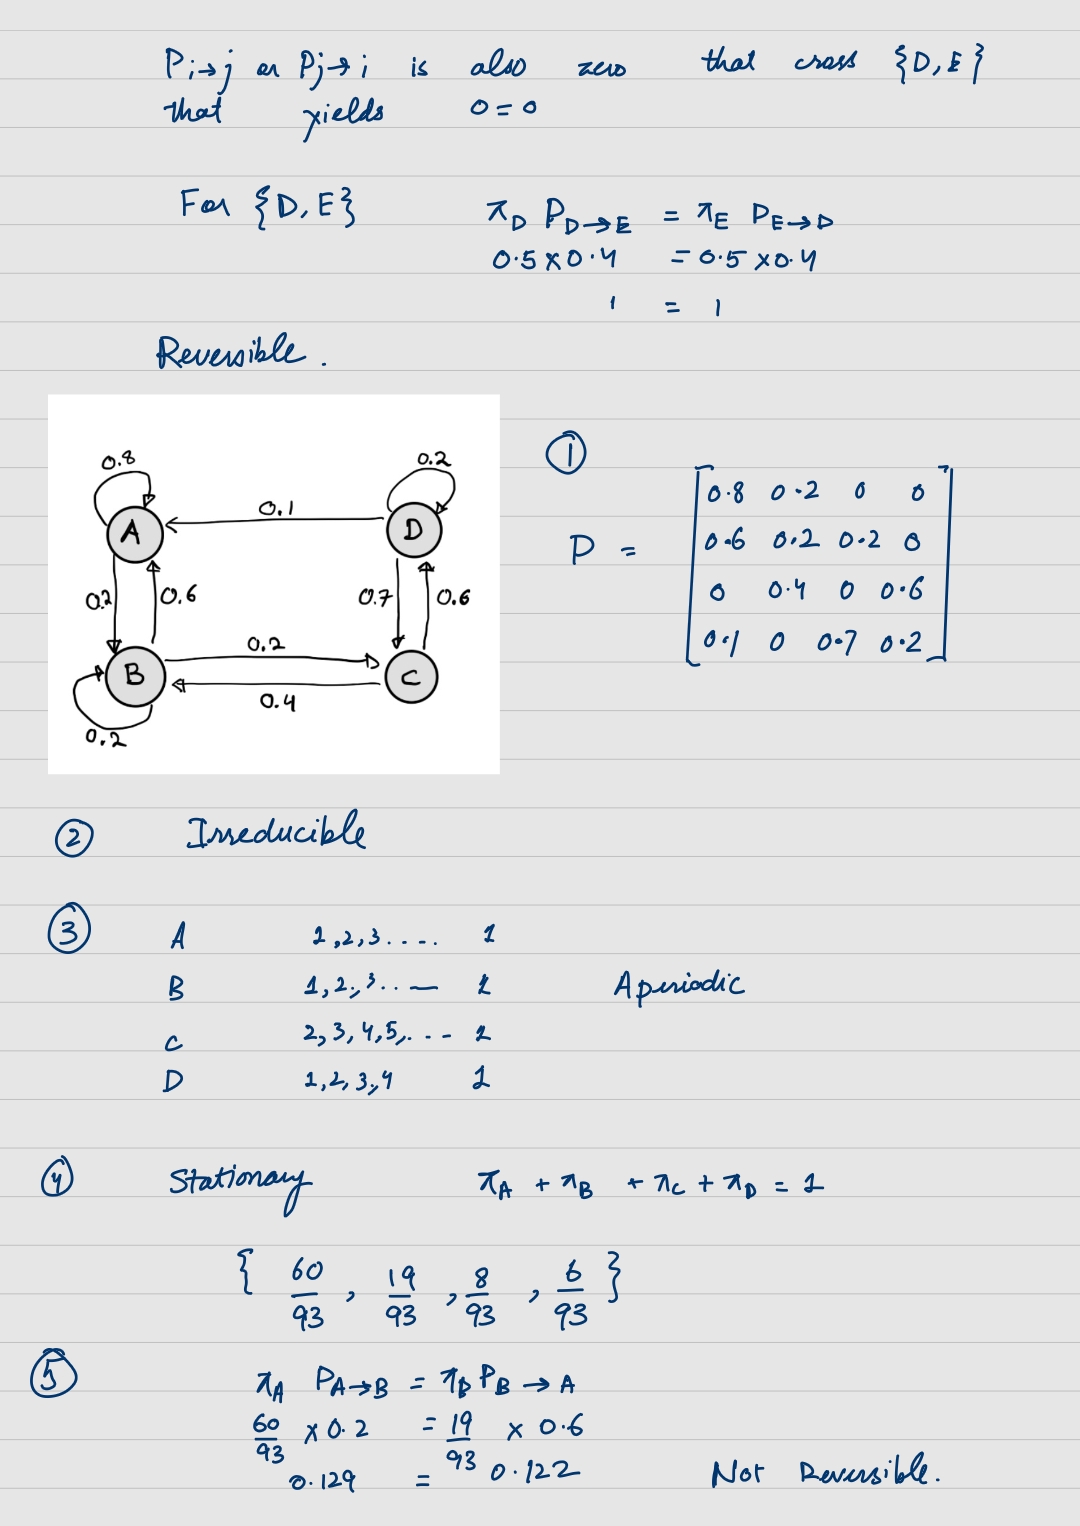 Pi→j or Pj→i is also zero that cross {D,E}
that yields 0=0
For {D,E} πD PD→E = πE PE→D
0.5 x 0.4 = 0.5 x 0.4
1 = 1
Reversible.
①
0.8 0.2
A 0.1 D
0.2 0.6 0.7 0.6
0.2
B C
0.4
0.2
P = [0.8 0.2 0 0
0.6 0.2 0.2 0
0 0.4 0 0.6
0.1 0 0.7 0.2]
② Irreducible
③ A 1,2,3.... 1
B 1,2,3..— 1 Aperiodic
C 2,3,4,5,... 1
D 1,2,3,4 1
④ Stationary πA + πB + πC + πD = 1
{ 60/93 , 19/93 , 8/93 , 6/93 }
⑤ πA PA→B = πB PB→A
60/93 x 0.2 = 19/93 x 0.6
0.129 = 0.122 Not Reversible.